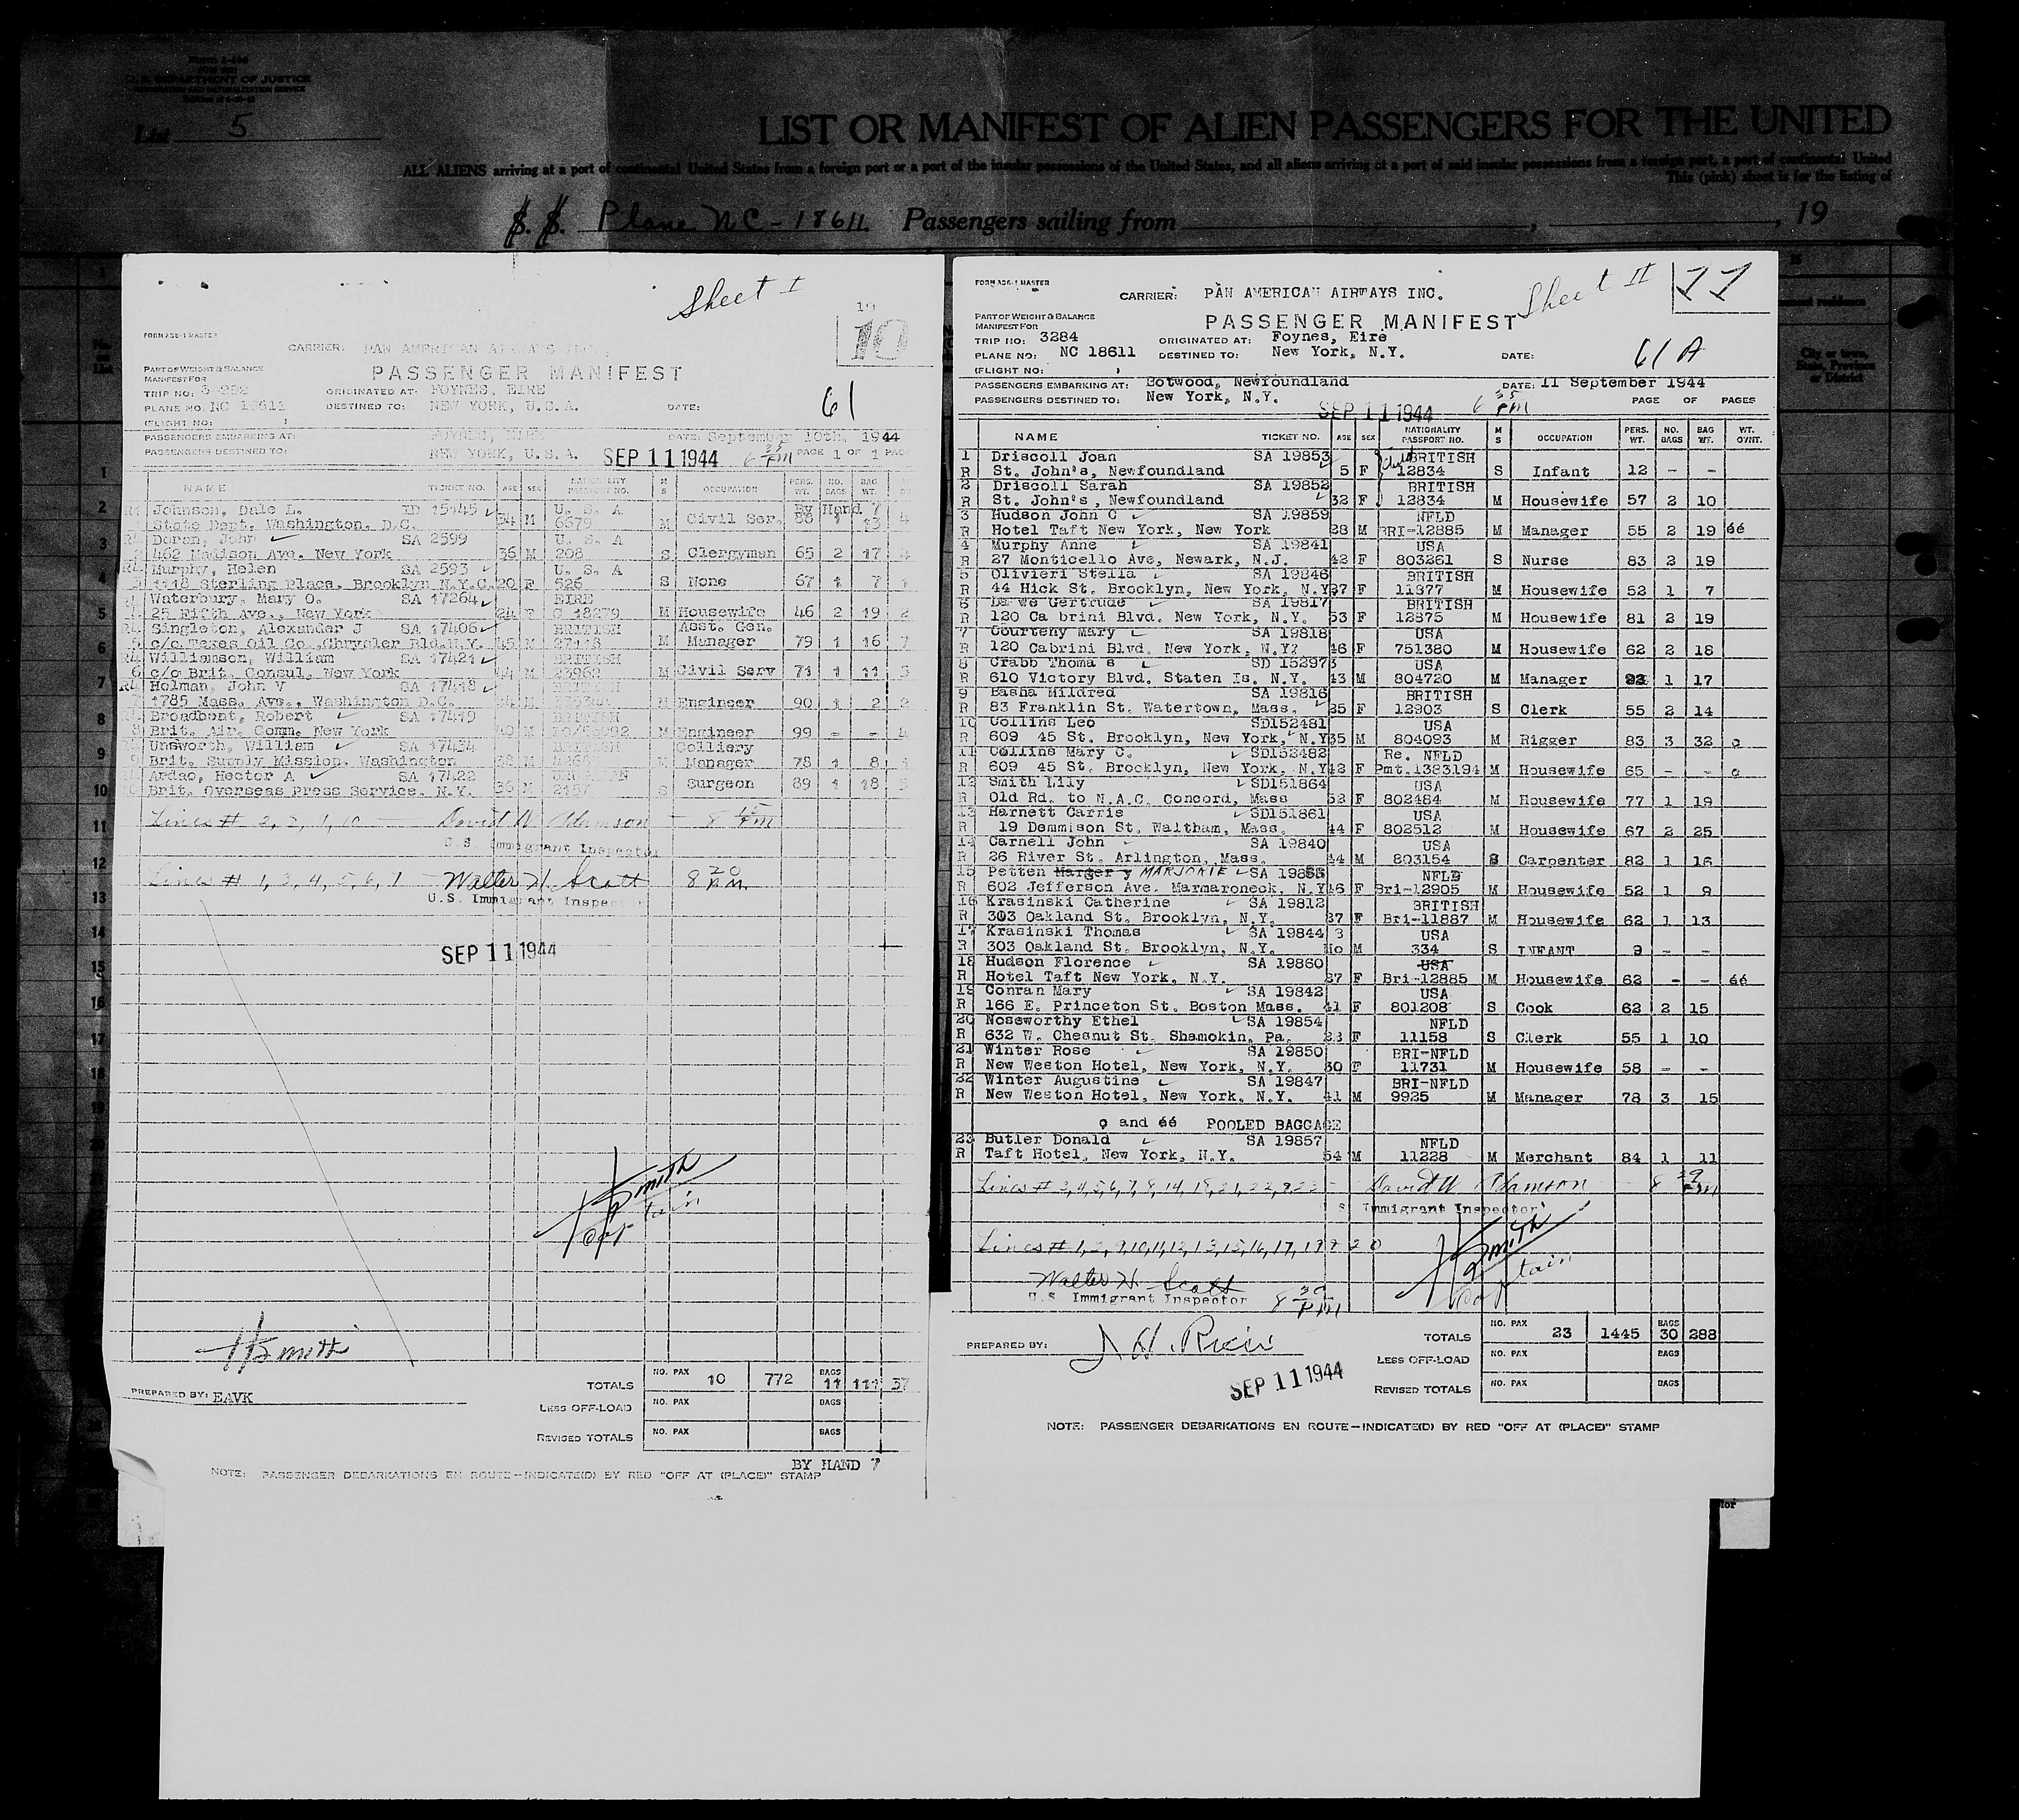 U.S. DEPARTMENT OF JUSTICE
IMMIGRATION AND NATURALIZATION SERVICE
List 5
LIST OR MANIFEST OF ALIEN PASSENGERS FOR THE UNITED
ALL ALIENS arriving at a port of continental United States from a foreign port or a port of the insular possessions of the United States, and all aliens arriving at a port of said insular possessions from a foreign port, a port of continental United
This (pink) sheet is for the listing of
S. S. Plane NC-18611. Passengers sailing from , , 19
Sheet I
19
10
FORM A36-1 MASTER
CARRIER: PAN AMERICAN AIRWAYS INC.
PART OF WEIGHT & BALANCE
MANIFEST FOR
PASSENGER MANIFEST
TRIP NO: ORIGINATED AT: FOYNES, EIRE
PLANE NO. NC 18611 DESTINED TO: NEW YORK, U.S.A. DATE: 61
(FLIGHT NO: )
PASSENGERS EMBARKING AT: FOYNES, EIRE DATE: September 10th, 1944
PASSENGERS DESTINED TO: NEW YORK, U.S.A. SEP 11 1944 6 35 PM PAGE 1 OF 1 PAGE
NAME TICKET NO. AGE SEX NATIONALITY PASSPORT NO. M S OCCUPATION PERS. WT. NO. BAGS BAG WT.
Johnson, Dale L. ID 15145 U. S. A By Hand 7
State Dept, Washington, D.C. 34 M 6679 M Civil Ser. 88 1 13 4
Doran, John SA 2599 U. S. A
462 Madison Ave. New York 36 M 208 S Clergyman 65 2 17
Murphy, Helen SA 2593 U. S. A
1118 Sterling Place, Brooklyn N.Y.C. 20 F 526 S None 67 1 7
Waterbury, Mary O. SA 17264 EIRE
25 Fifth Ave., New York 24 F C 18279 M Housewife 46 2 19 2
Singleton, Alexander J SA 17406 BRITISH Asst. Gen.
c/o Texas Oil Co. Chrysler Bld. N.Y. 45 M 27118 M Manager 79 1 16 7
Williamson, William SA 17421 BRITISH
c/o Brit. Consul, New York 44 M 23962 M Civil Serv 71 1 11 5
Holman, John V SA 17418 BRITISH
1785 Mass. Ave., Washington D.C. M M Engineer 90 1 2 2
Broadbent, Robert SA 17419 BRITISH
Brit. Air. Comm. New York 40 M M Engineer 99 - - 4
Unsworth, William SA 17434 BRITISH Colliery
Brit. Supply Mission, Washington 38 M M Manager 78 1 8
Ardao, Hector A SA 17422
Brit. Overseas Press Service, N.Y. 36 M 2157 S Surgeon 89 1 18 5
Lines # 2, 8, 9, 10 David W Adamson 8 15 PM
U.S. Immigrant Inspector
Lines # 1, 3, 4, 5, 6, 7 Walter H. Scott 8 20 PM
U.S. Immigrant Inspector
SEP 11 1944
Smith
Captain
PREPARED BY: EAVK
TOTALS NO. PAX 10 772 BAGS 11 111 37
LESS OFF-LOAD NO. PAX BAGS
REVISED TOTALS NO. PAX BAGS
BY HAND 7
NOTE: PASSENGER DEBARKATIONS EN ROUTE—INDICATE(D) BY RED "OFF AT (PLACE)" STAMP
Sheet II
11
FORM A36-1 MASTER
CARRIER: PAN AMERICAN AIRWAYS INC.
PART OF WEIGHT & BALANCE
MANIFEST FOR
PASSENGER MANIFEST
TRIP NO: 3284 ORIGINATED AT: Foynes, Eire
PLANE NO: NC 18611 DESTINED TO: New York, N.Y. DATE: 61 A
(FLIGHT NO: )
PASSENGERS EMBARKING AT: Botwood, Newfoundland DATE: 11 September 1944
PASSENGERS DESTINED TO: New York, N.Y. SEP 11 1944 6 35 PM PAGE OF PAGES
NAME TICKET NO. AGE SEX NATIONALITY PASSPORT NO. M S OCCUPATION PERS. WT. NO. BAGS BAG WT. WT. OVNT.
1 Driscoll Joan SA 19853 BRITISH
R St. John's, Newfoundland 5 F 12834 S Infant 12 - -
2 Driscoll Sarah SA 19852 BRITISH
R St. John's, Newfoundland 32 F 12834 M Housewife 57 2 10
3 Hudson John C SA 19859 NFLD
R Hotel Taft New York, New York 38 M BRI-12885 M Manager 55 2 19 éé
4 Murphy Anne SA 19841 USA
R 27 Monticello Ave, Newark, N.J. 42 F 803261 S Nurse 83 2 19
5 Olivieri Stella SA 19846 BRITISH
R 44 Hick St. Brooklyn, New York, N.Y. 37 F 11877 M Housewife 52 1 7
6 Dawe Gertrude SA 19817 BRITISH
R 120 Ca brini Blvd. New York, N.Y. 53 F 12875 M Housewife 81 2 19
7 Courteny Mary SA 19818 USA
R 120 Cabrini Blvd. New York, N.Y. 46 F 751380 M Housewife 62 2 18
8 Crabb Thoma s SD 152973 USA
R 610 Victory Blvd. Staten Is. N.Y. 43 M 804720 M Manager 1 17
9 Basha Mildred SA 19816 BRITISH
R 83 Franklin St. Watertown, Mass. 35 F 12903 S Clerk 55 2 14
10 Collins Leo SD152481 USA
R 609 45 St. Brooklyn, New York, N.Y. 35 M 804093 M Rigger 83 3 32 o
11 Collins Mary C. SD152482 Re. NFLD
R 609 45 St. Brooklyn, New York, N.Y. 42 F Pmt.1383194 M Housewife 65 - - o
12 Smith Lily SD151864 USA
R Old Rd. to N.A.C. Concord, Mass 52 F 802484 M Housewife 77 1 19
13 Harnett Carrie SD151861 USA
R 19 Demmison St, Waltham, Mass. 44 F 802512 M Housewife 67 2 25
14 Carnell John SA 19840 USA
R 26 River St. Arlington, Mass. 44 M 803154 S Carpenter 82 1 16
15 Petten Margery MARJORIE SA 19855 NFLD
R 602 Jefferson Ave. Marmaroneck, N.Y. 46 F Bri-12905 M Housewife 52 1 9
16 Krasinski Catherine SA 19812 BRITISH
R 303 Oakland St. Brooklyn, N.Y. 37 F Bri-11887 M Housewife 62 1 13
17 Krasinski Thomas SA 19844 3 USA
R 303 Oakland St. Brooklyn, N.Y. Mo M 334 S INFANT 9 - -
18 Hudson Florence SA 19860 USA
R Hotel Taft New York, N.Y. 37 F Bri-12885 M Housewife 62 - - éé
19 Conran Mary SA 19842 USA
R 166 E. Princeton St. Boston Mass. 41 F 801208 S Cook 62 2 15
20 Noseworthy Ethel SA 19854 NFLD
R 632 W. Chesnut St. Shamokin, Pa. 23 F 11158 S Clerk 55 1 10
21 Winter Rose SA 19850 BRI-NFLD
R New Weston Hotel, New York, N.Y. 30 F 11731 M Housewife 58 - -
22 Winter Augustine SA 19847 BRI-NFLD
R New Weston Hotel, New York, N.Y. 41 M 9925 M Manager 78 3 15
o and éé POOLED BAGGAGE
23 Butler Donald SA 19857 NFLD
R Taft Hotel, New York, N.Y. 54 M 11228 M Merchant 84 1 11
Lines # 3,4,5,6,7,8,14,18,21,22,&23 - David W Adamson - 8 29 PM
U S Immigrant Inspector
Lines # 1,2,9,10,11,12,13,15,16,17,19 & 20
Smith
Captain
Walter H. Scott
U.S. Immigrant Inspector 8 30 PM
PREPARED BY:
SEP 11 1944
TOTALS NO. PAX 23 1445 BAGS 30 288
LESS OFF-LOAD NO. PAX BAGS
REVISED TOTALS NO. PAX BAGS
NOTE: PASSENGER DEBARKATIONS EN ROUTE—INDICATE(D) BY RED "OFF AT (PLACE)" STAMP